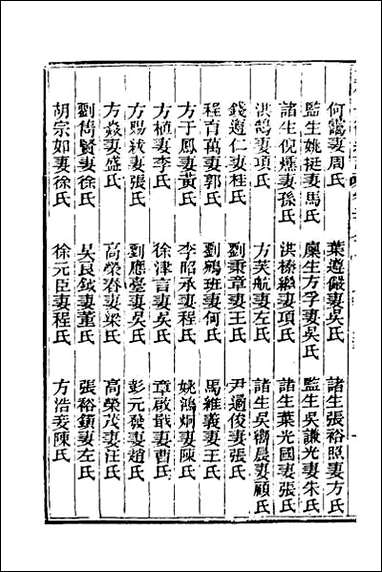 何鶚妻周氏　葉遵嚴妻吳氏　諸生張裕照妻方氏
監生姚挺妻馬氏　廩生方孚妻吳氏　監生吳謙光妻朱氏
諸生倪燻妻孫氏　洪榛繼妻項氏　諸生葉光國妻張氏
洪鵠妻項氏　方芙航妻左氏　諸生吳樹晨妻顧氏
錢遵仁妻桂氏　劉秉章妻王氏　尹適俊妻張氏
程百萬妻郭氏　劉鵷班妻何氏　馬維義妻王氏
方于鳳妻黃氏　李昭承妻程氏　姚鴻炯妻陳氏
方植妻李氏　徐津言妻吳氏　章啟戢妻曹氏
方賜紱妻張氏　劉應臺妻吳氏　彭元發妻趙氏
方焱妻盛氏　高榮春妻梁氏　高榮茂妻汪氏
劉簡賢妻徐氏　吳良鉞妻董氏　張裕鎮妻左氏
胡宗如妻徐氏　徐元臣妻程氏　方浩妾陳氏